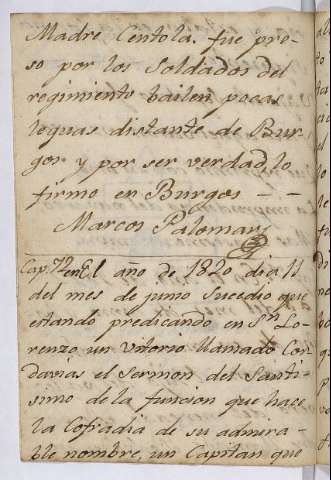 Madre Centola, fue pre-
so por los Soldados del
regimiento bailen pocas
leguas distante de Bur
gos y por ser verdad lo
firmo en Burgos - -
Marcos Palomar
Cap. 72 en El año de 1820 dia 11
del mes de junio Sucedio que
estando predicando en Sn Lo-
renzo un Vitorio llamado Con
davias el Sermon del Santi-
simo de la funcion que hace
la Cofradia de su admira-
ble nombre, un Capitan que